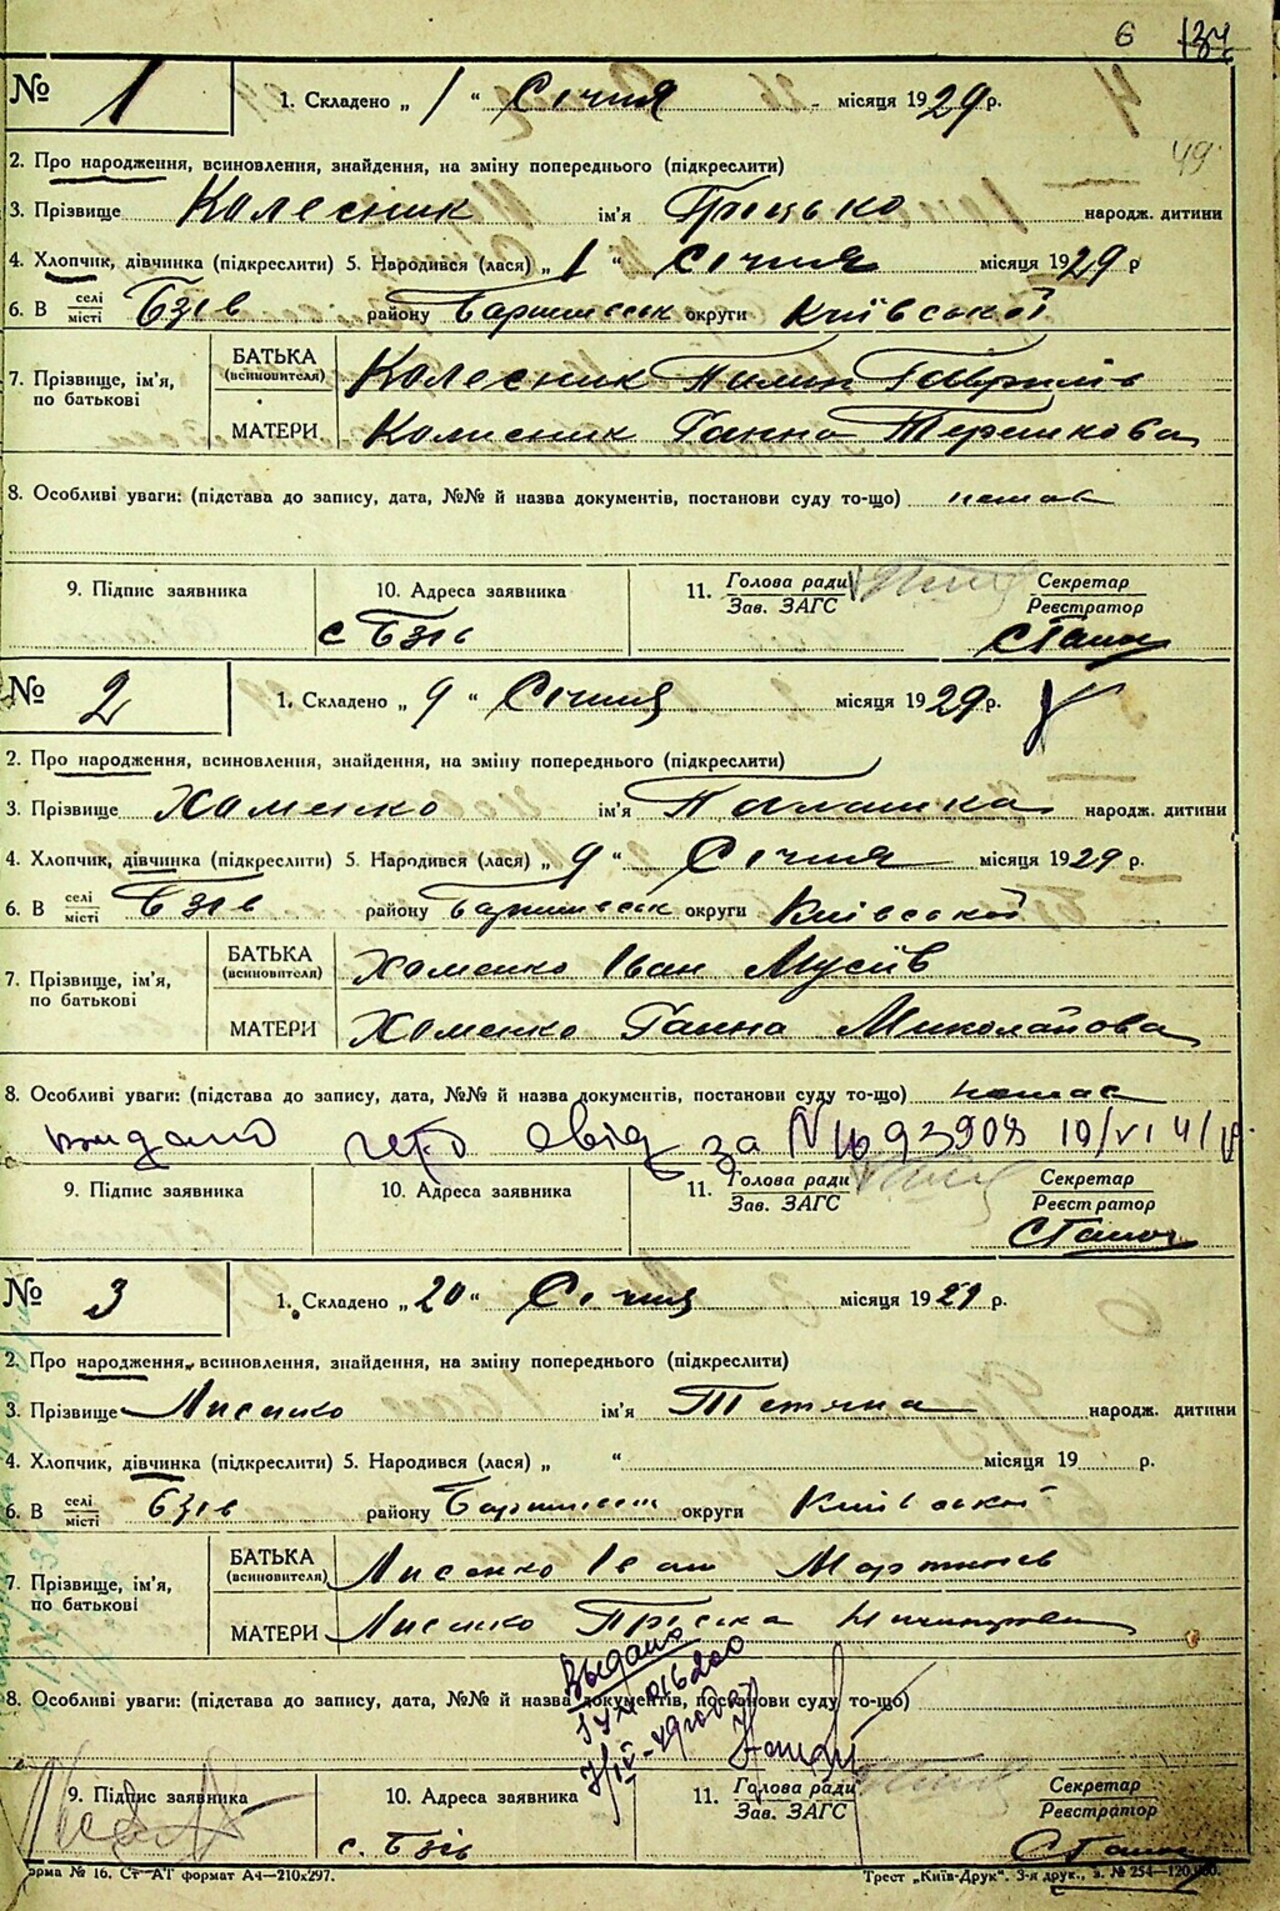 6 134
№ 1 1. Складено „ 1 “ Січня місяця 1929 р.
49
2. Про народження, всиновлення, знайдення, на зміну попереднього (підкреслити)
3. Прізвище Колесник ім'я Грицько народж. дитини
4. Хлопчик, дівчинка (підкреслити) 5. Народився (лася) „ 1 “ Січня місяця 1929 р
6. В селі місті Бзів району Баришевськ округи Київської
7. Прізвище, ім'я, по батькові
БАТЬКА (всиновителя) Колесник Пилип Гаврилів
МАТЕРИ Колисник Ганна Терешкова
8. Особливі уваги: (підстава до запису, дата, №№ й назва документів, постанови суду то-що) немає
9. Підпис заявника 10. Адреса заявника 11. Голова ради Зав. ЗАГС Секретар Реєстратор
с Бзів
№ 2 1. Складено „ 9 “ Січня місяця 1929 р.
2. Про народження, всиновлення, знайдення, на зміну попереднього (підкреслити)
3. Прізвище Хоменко ім'я Палашка народж. дитини
4. Хлопчик, дівчинка (підкреслити) 5. Народився (лася) „ 9 “ Січня місяця 1929 р.
6. В селі місті Бзів району Баришевськ округи Київської
7. Прізвище, ім'я, по батькові
БАТЬКА (всиновителя) Хоменко Іван Мусіїв
МАТЕРИ Хоменко Ганна Миколайова
8. Особливі уваги: (підстава до запису, дата, №№ й назва документів, постанови суду то-що) немає
видано свід за № 093908 10/VI 41
9. Підпис заявника 10. Адреса заявника 11. Голова ради Зав. ЗАГС Секретар Реєстратор
№ 3 1. Складено „ 20 “ Січня місяця 1929 р.
2. Про народження, всиновлення, знайдення, на зміну попереднього (підкреслити)
3. Прізвище Лисенко ім'я Тетяна народж. дитини
4. Хлопчик, дівчинка (підкреслити) 5. Народився (лася) „ “ місяця 19 р.
6. В селі місті Бзів району Баришевськ округи Київської
7. Прізвище, ім'я, по батькові
БАТЬКА (всиновителя) Лисенко Іван Мартинів
МАТЕРИ Лисенко Пріська Ничипорова
Выдано
016200
8. Особливі уваги: (підстава до запису, дата, №№ й назва документів, постанови суду то-що)
9. Підпис заявника 10. Адреса заявника 11. Голова ради Зав. ЗАГС Секретар Реєстратор
с. Бзів
орма № 16. Ст АТ формат А4—210x297. Трест „Київ-Друк“. 3-я друк., з. № 254—120.000.